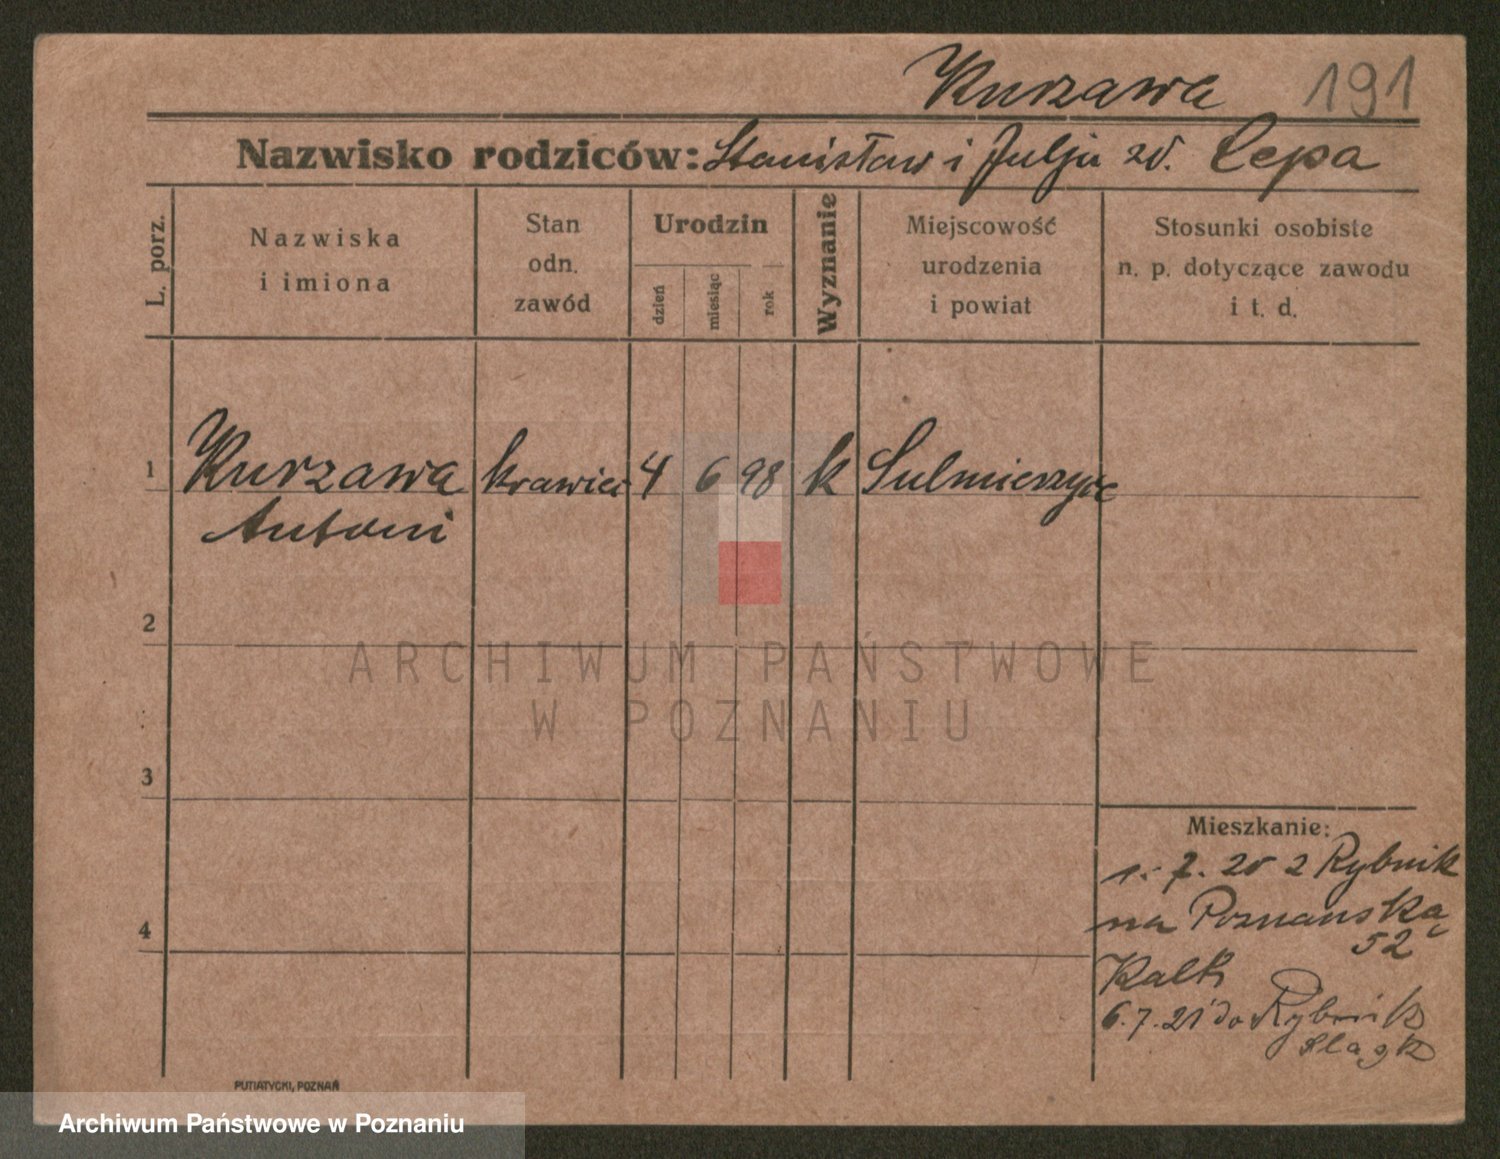 Kurzawa 191
Nazwisko rodziców: Stanisław i Julja zd. Lepa
L. porz.
Nazwiska
i imiona
Stan
odn.
zawód
Urodzin
dzień
miesiąc
rok
Wyznanie
Miejscowość
urodzenia
i powiat
Stosunki osobiste
n. p. dotyczące zawodu
i t. d.
1 Kurzawa krawiec 4 6 98 k Sulmierzyce
Antoni
2
ARCHIWUM PAŃSTWOWE
W POZNANIU
3
Mieszkanie:
1. 7. 20 z Rybnik
na Poznańską
52
4
Kalk
6.7.21 do Rybnik
Śląsk
PUTIATYCKI, POZNAŃ
Archiwum Państwowe w Poznaniu